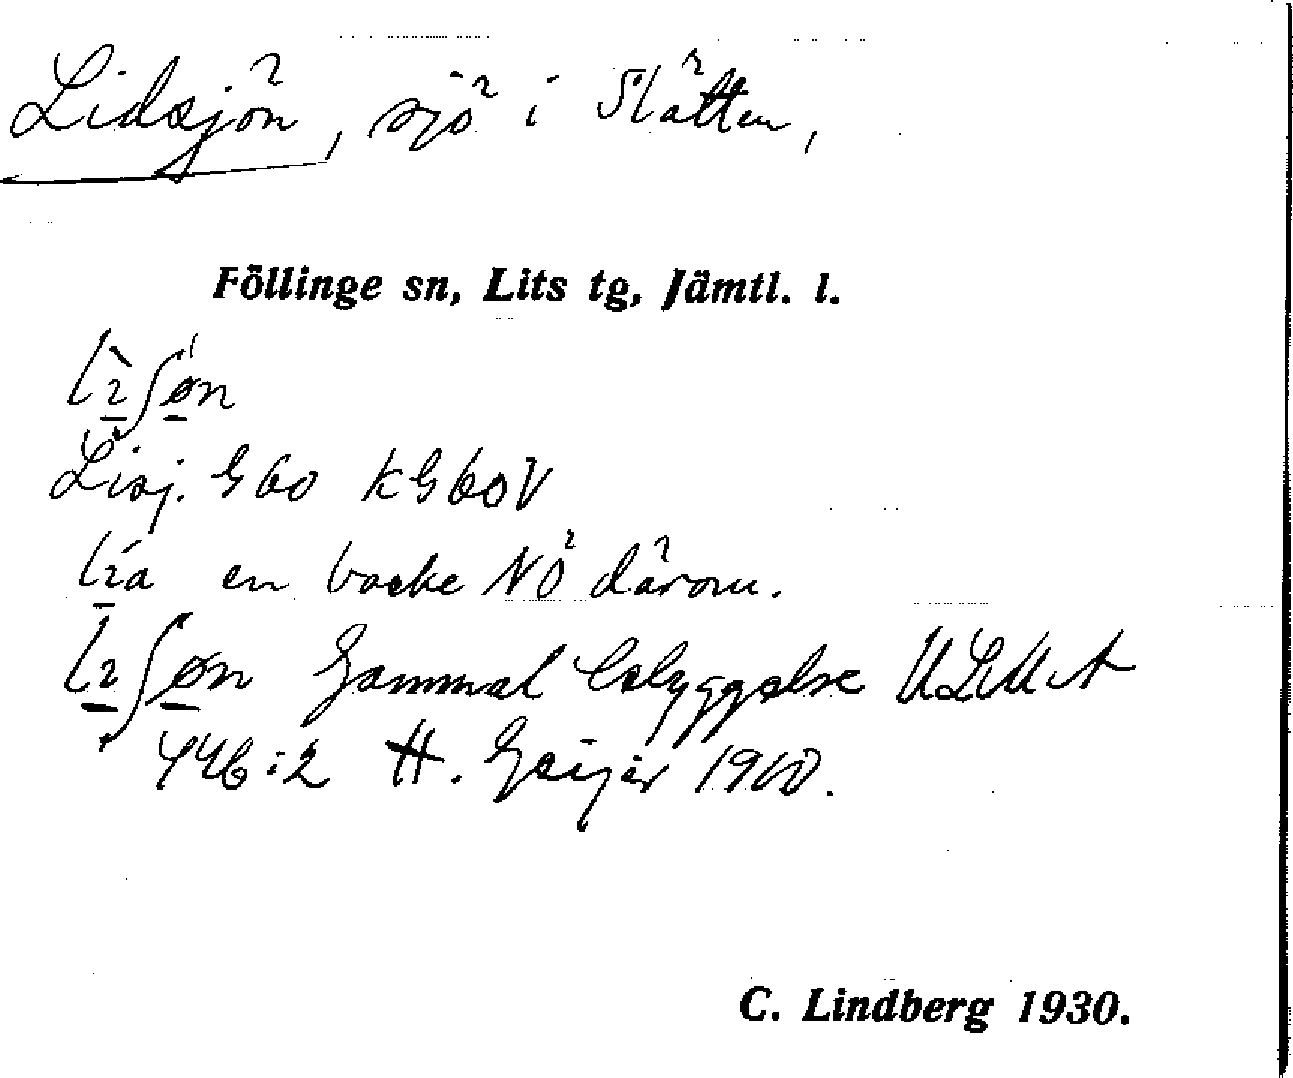 Lidsjön, sjö i Slåtten,
Föllinge sn, Lits tg, Jämtl. l.
Lisj. G 60 KG60V
en backe NÖ därom.
Gammal bebyggelse ULMA
446:2 H. Geijer 1910.
C. Lindberg 1930.